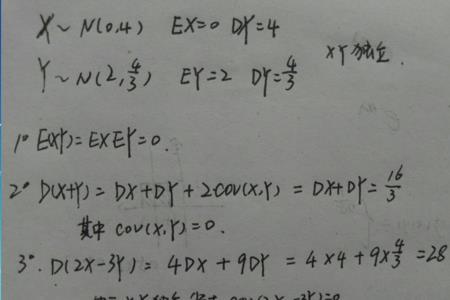 X ~ N(0,4) EX=0 DX=4
Y ~ N(2, 4/3) EY=2 DY=4/3 XY独立.
1° E(XY)=EXEY=0.
2° D(X+Y) = DX+DY + 2COV(X,Y) = DX+DY = 16/3
其中 COV(X,Y)=0.
3°. D(2X-3Y) = 4DX + 9DY = 4×4 + 9×4/3 = 28